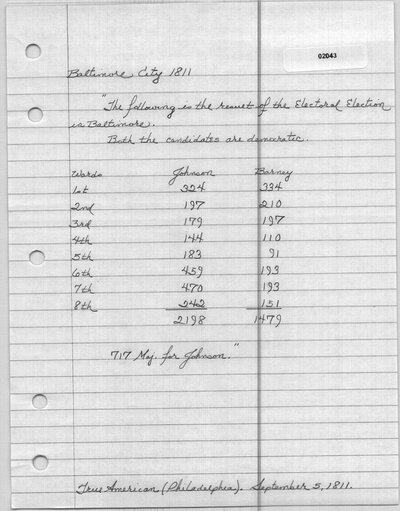 02043
Baltimore City 1811
"The following is the result of the Electoral Election
in Baltimore.
Both the candidates are democratic.
Wards Johnson Barney
1st 324 334
2nd 197 210
3rd 179 197
4th 144 110
5th 183 91
6th 459 193
7th 470 193
8th 242 151
2198 1479
717 Maj. for Johnson."
True American (Philadelphia). September 5, 1811.